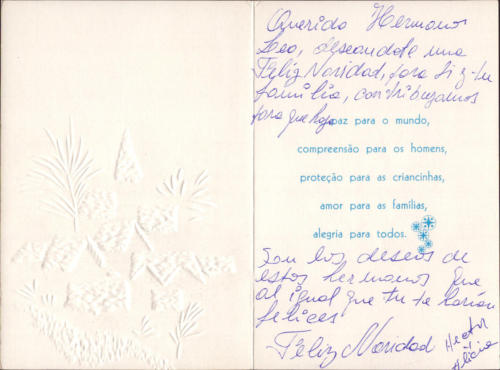 Querido Hermano
Leo, deseandote una
Feliz Navidad, para ti y tu
familia, contribuyamos
para que haya
paz para o mundo,
compreensão para os homens,
proteção para as criancinhas,
amor para as famílias,
alegria para todos.
Son los deseos de
estos hermanos que
al igual que tu te harían
felices
Feliz Navidad
Hector
y Alicia